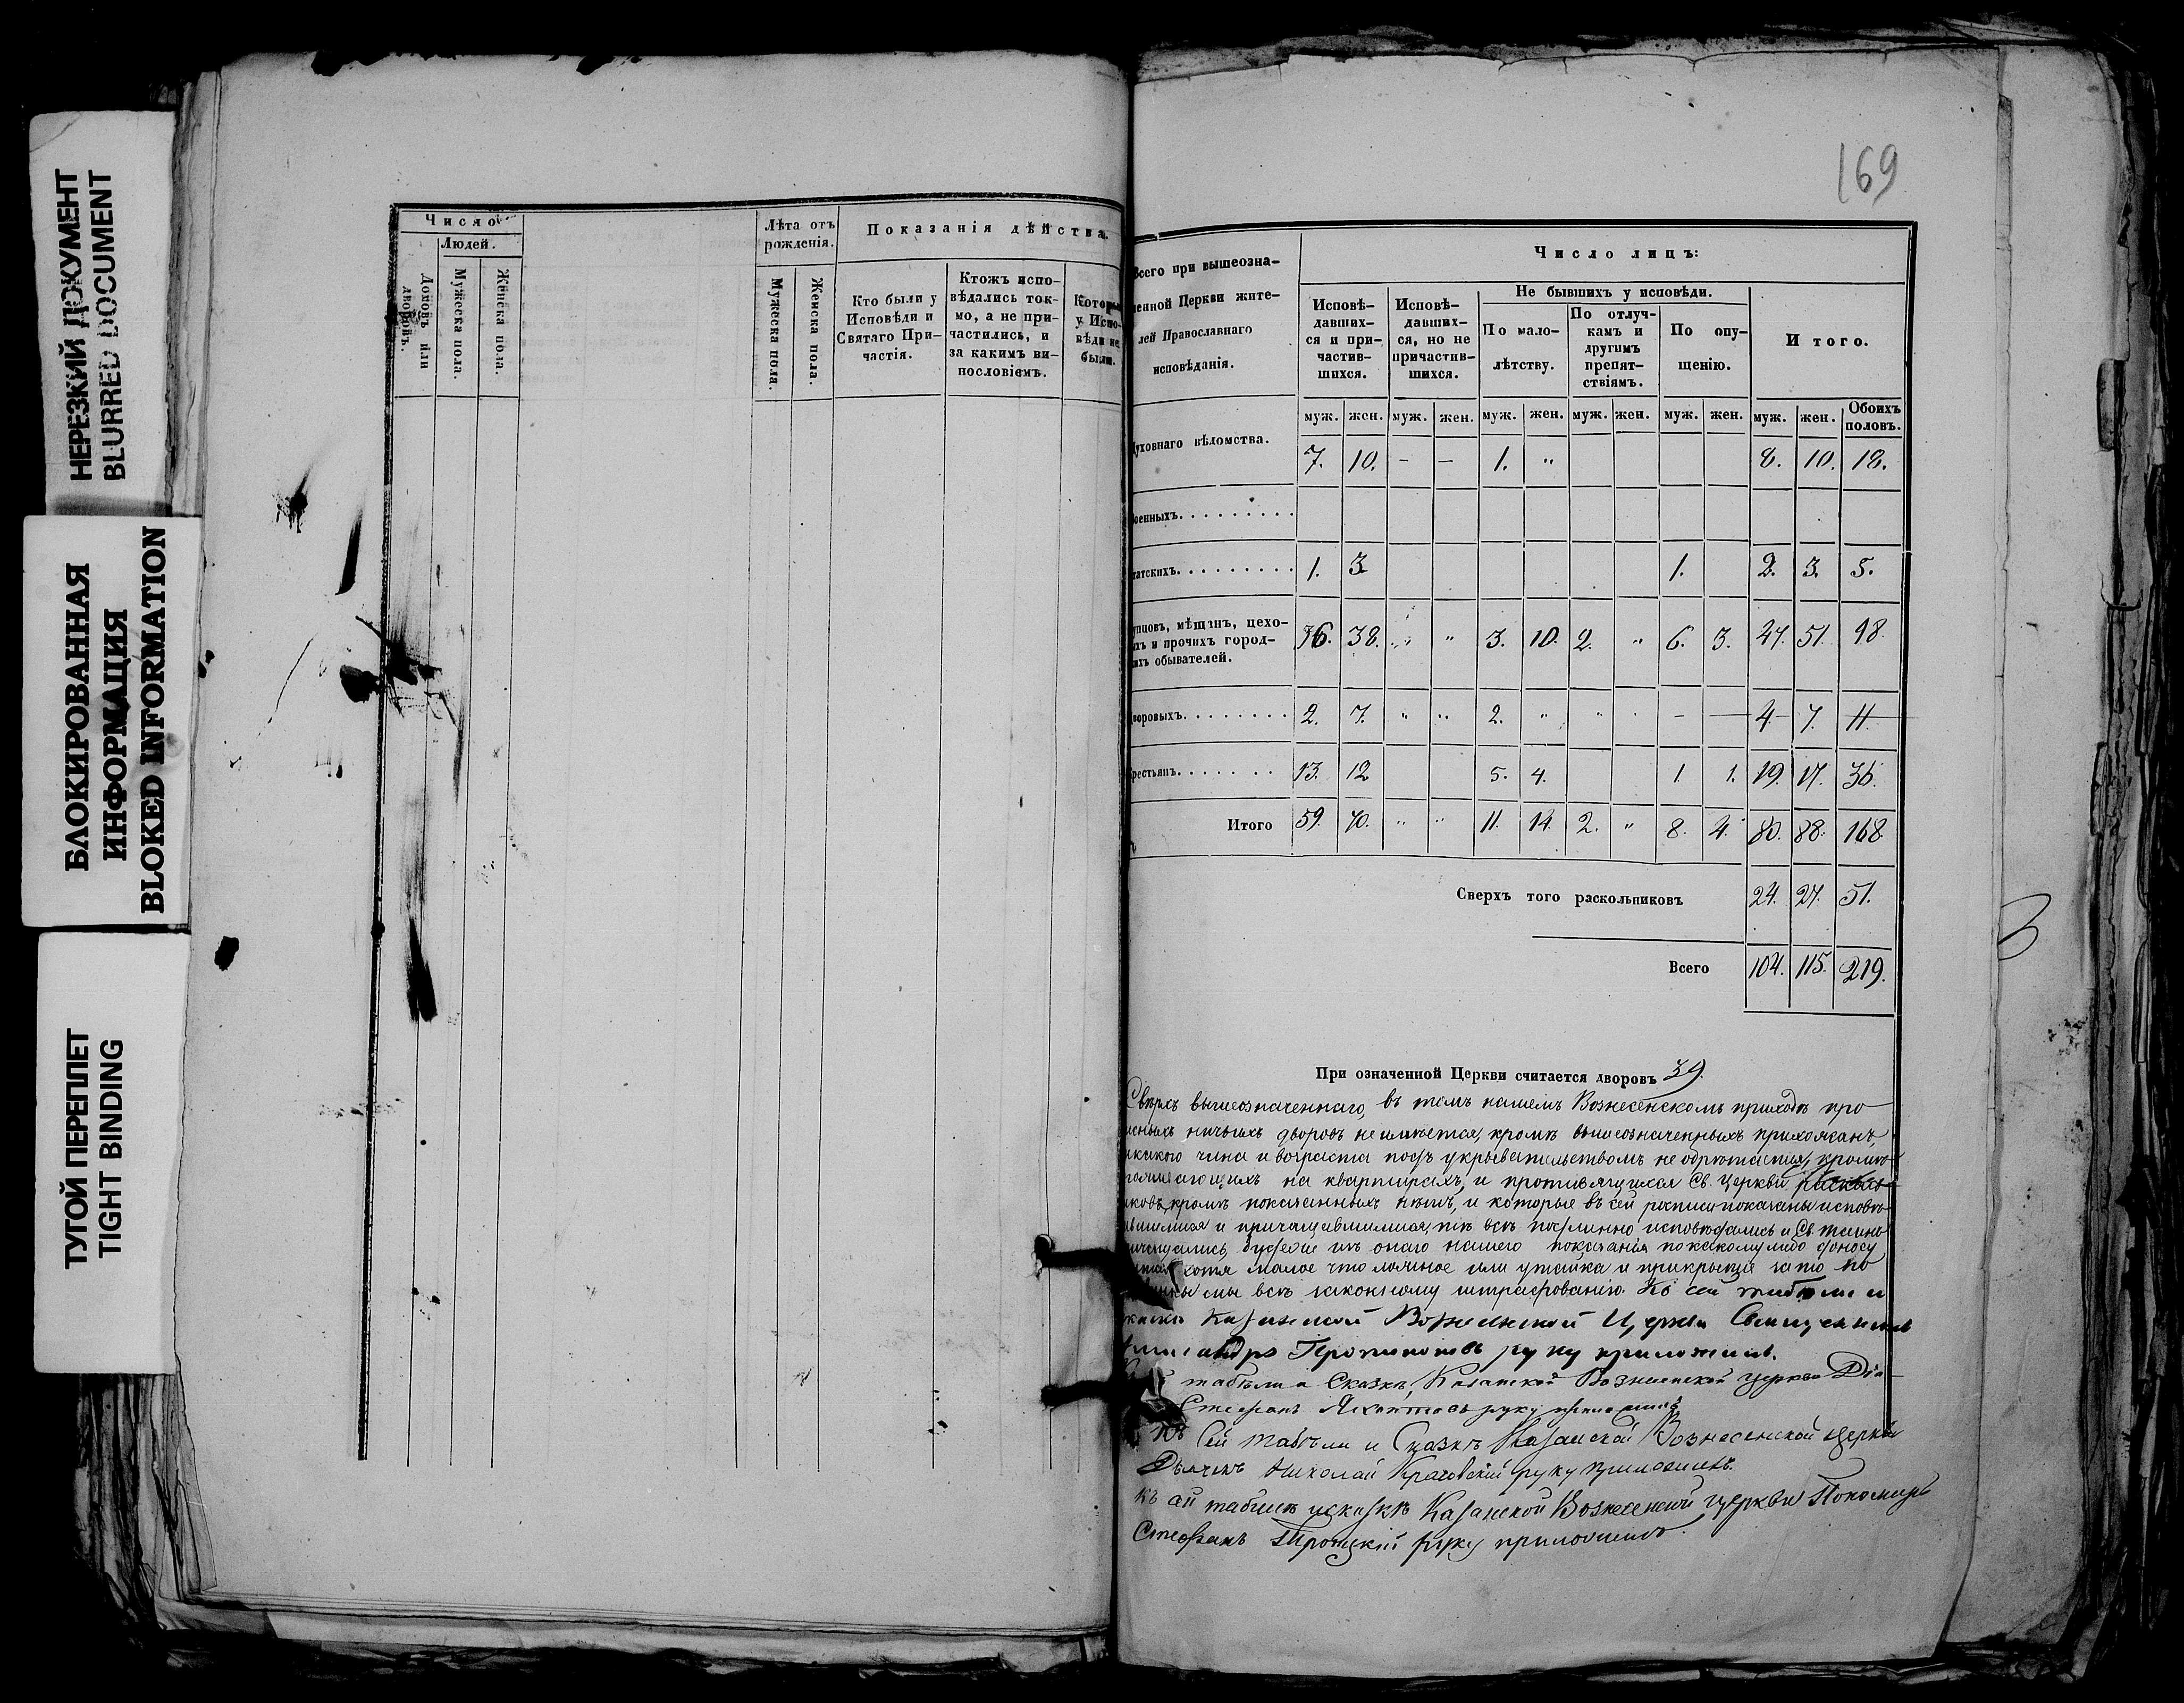 НЕРЕЗКИЙ ДОКУМЕНТ
BLURRED DOCUMENT
БЛОКИРОВАННАЯ
ИНФОРМАЦИЯ
BLOKED INFORMATION
ТУГОЙ ПЕРЕПЛЕТ
TIGHT BINDING
Число
Людей.
Домовъ или дворовъ.
Мужеска пола.
Женска пола.
Лѣта отъ рожденія.
Мужеска пола.
Женска пола.
Показанія дѣйства.
Кто были у
Исповѣди и
Святаго При-
частія.
Ктожъ испо-
вѣдались ток-
мо, а не при-
частились, и
за какимъ ви-
нословіемъ.
у Испо-
вѣди не
были.
169
Всего при вышеозна-
ченной Церкви жите-
лей Православнаго
исповѣданія.
Число лицъ:
Исповѣ-
давших-
ся и при-
частив-
шихся.
Исповѣ-
давших-
ся, но не
причастив-
шихся.
Не бывшихъ у исповѣди.
По мало-
лѣтству.
По отлуч-
камъ и
другимъ
препят-
ствіямъ.
По опу-
щенію.
Итого.
муж. жен. муж. жен. муж. жен. муж. жен. муж. жен. муж. жен. Обоихъ половъ.
уховнаго вѣдомства. 7. 10. — — 1. „ 8. 10. 18.
оенныхъ.
татскихъ. 1. 3 1. 2. 3. 5.
упцовъ, мѣщанъ, цехо-
ыхъ и прочихъ город-
ихъ обывателей. 36. 38. „ „ 3. 10. 2. „ 6. 3. 47. 51. 98.
воровыхъ. 2. 7. „ „ 2. „ „ „ — — 4 7. 11
рестьянъ. 13. 12 5. 4. 1. 1. 19. 17. 36.
Итого 59. 70. „ „ 11. 14. 2. „ 8. 4. 80. 88. 168
Сверхъ того раскольниковъ 24. 27. 51.
Всего 104. 115. 219.
При означенной Церкви считается дворовъ 39.
Сверхъ вышеозначеннаго, въ темъ нашемъ Вознесенскомъ приходѣ про
ничьихъ дворовъ не имѣется, кромѣ вышеозначенныхъ прихожанъ,
чина и возраста подъ укрывательствомъ не обрѣтается, кромѣ
на квартирахъ, и противящихся Св. Церкви
кромѣ показанныхъ и которые въ сей росписи показаны исповѣ
и причащавшимися, тѣ всѣ подлинно исповѣдались и Св. таинъ
будеже изъ онаго нашего показанія по какому либо доносу
хотя малое что ложное или утайка и прикрытіе за то по
мы всѣ законному штрафованію. Къ сей табели и
Казанской Вознесенской Церкви Священникъ
руку приложилъ.
табели и Сказкѣ, Казанской Вознесенской церкви Діа
Стефанъ руку приложилъ
Къ Сей табели и Сказкѣ Казанской Вознесенской церкви
Дьячекъ Николай руку приложилъ.
къ сей табели и сказкѣ Казанской Вознесенской церкви Пономарь
Стефанъ Троицкій руку приложилъ.